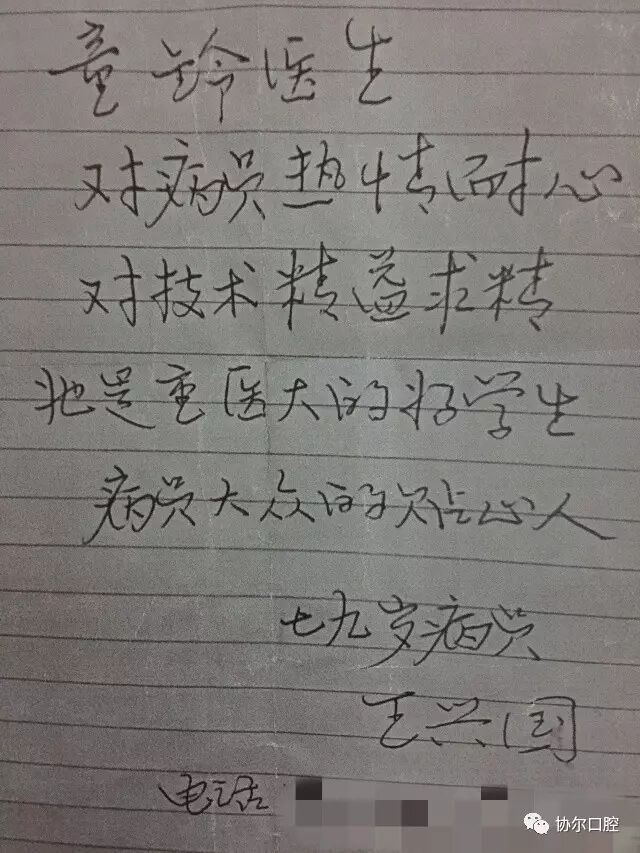 童龄医生
对病员热情而耐心
对技术精益求精
她是重医大的好学生
病员大众的贴心人
七九岁病员
王兴国
电话
协尔口腔